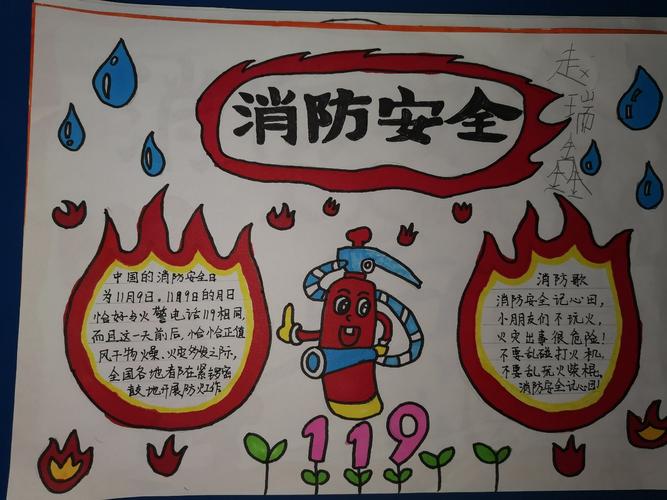 消防安全
赵瑞鑫
中国的消防安全日
为11月9日。11月9日的月日
恰好与火警电话119相同,
而且这一天前后,恰恰正值
风干物燥、火灾多发之际,
全国各地都在紧锣密
鼓地开展防火工作
消防歌
消防安全记心田,
小朋友们不玩火,
火灾出事很危险!
不要乱碰打火机,
不要乱玩火柴棍,
消防安全记心田!
119